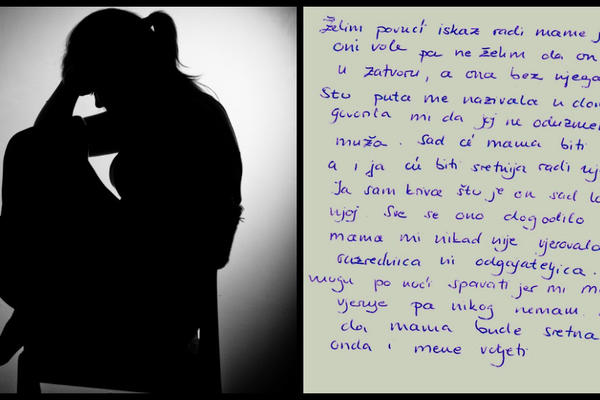 Želim povući iskaz radi mame j
oni vole pa ne želim da on
u zatvoru, a ona bez njega
sto puta me nazivala u dom
govorila mi da joj ne oduzmem
muža. Sad će mama biti
a i ja ću biti sretnija radi nj
Ja sam kriva što je on sad
njoj. Sve se ono dogodilo
mama mi nikad nije vjerovala
razrednica ni odgojateljica.
mogu po noći spavati jer mi m
vjeruje pa nikog nemam.
da mama bude sretna
onda i mene voljeti